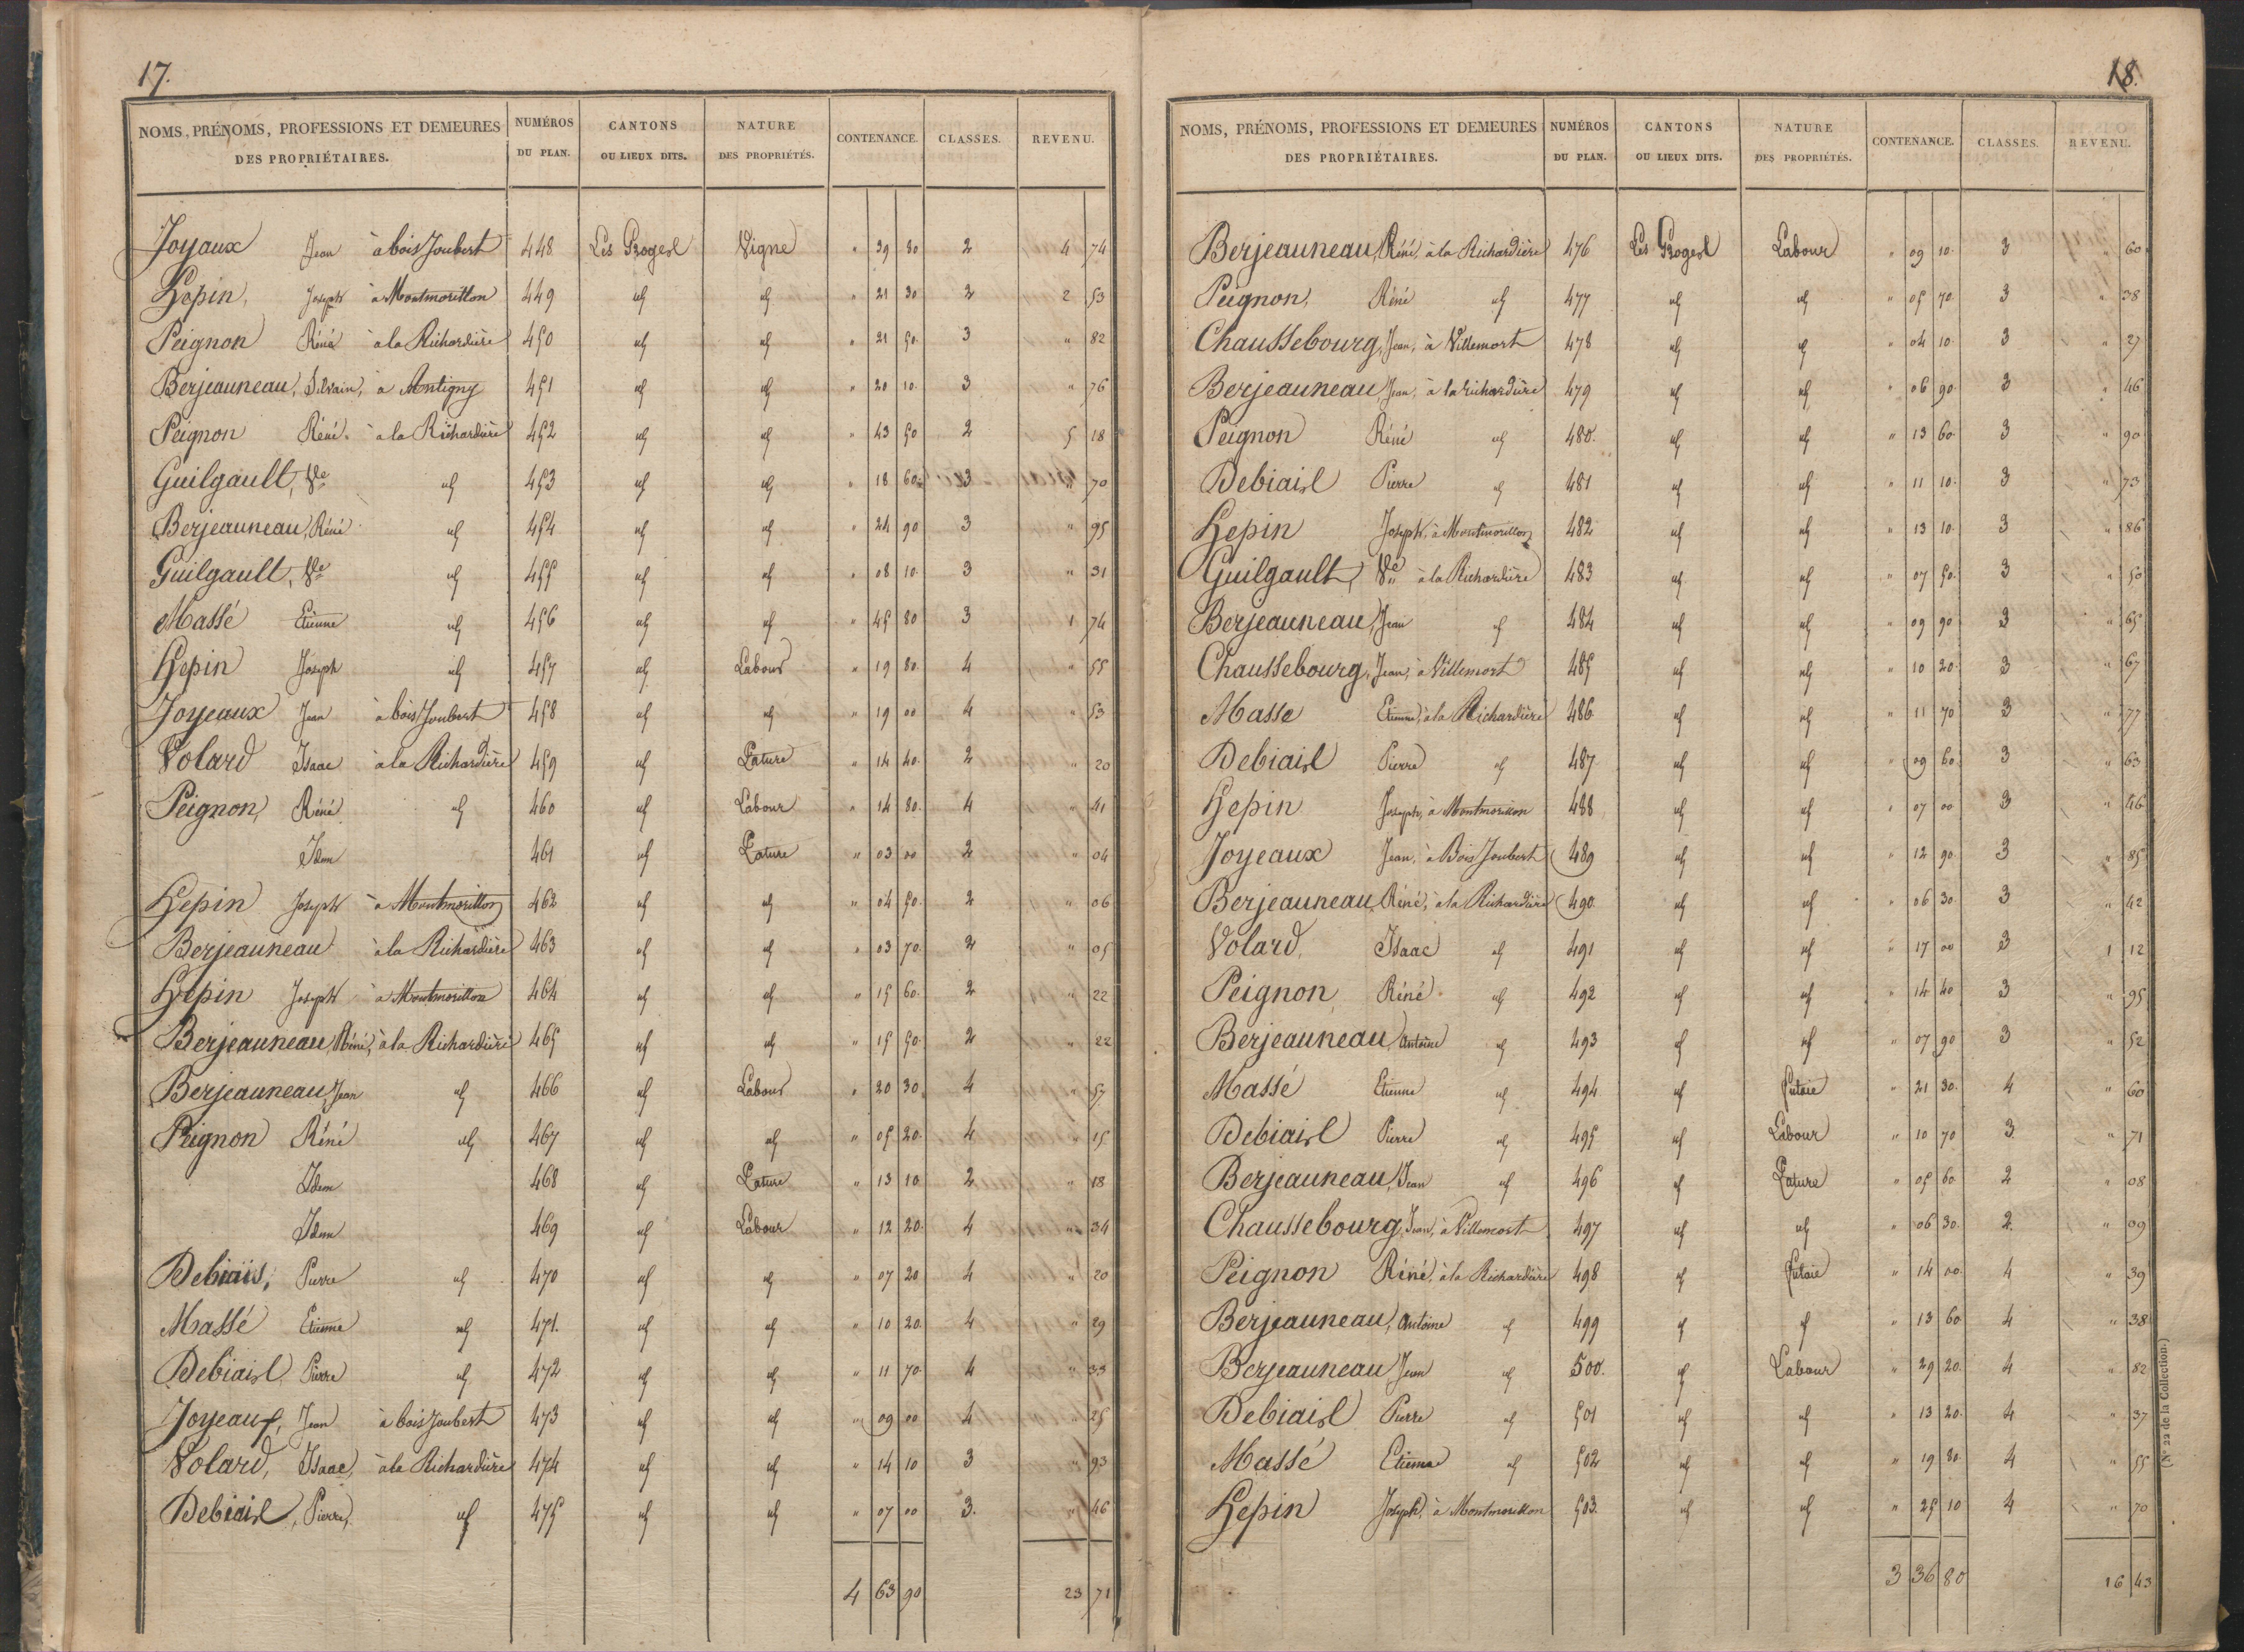 17.
NOMS, PRÉNOMS, PROFESSIONS ET DEMEURES DES PROPRIÉTAIRES. NUMÉROS DU PLAN. CANTONS OU LIEUX DITS. NATURE DES PROPRIÉTÉS. CONTENANCE. CLASSES. REVENU.
Joyaux Jean à bois Joubert 448 Les Vigne " 39 80 2 4 74
Hepin, Joseph à Montmorillon 449 id id " 21 30 2 2 53
Peignon Réné à la Richardière 450 id id " 21 50 3 " 82
Berjeauneau, Silvain, à Antigny 451 id id " 20 10 3 " 76
Peignon Réné à la Richardière 452 id id " 43 50 2 5 18
Guilgault, Ve id 453 id id " 18 60 3 " 70
Berjeauneau, Réné id 454 id id " 24 90 3 " 95
Guilgault, Ve id 455 id id " 08 10 3 " 31
Massé Etienne id 456 id id " 45 80 3 1 74
Hepin Joseph id 457 id Labour " 19 80 4 " 55
Joyeaux Jean à bois Joubert 458 id id " 19 00 4 " 53
Volard Isaac à la Richardière 459 id Pature " 14 40 2 " 20
Peignon, Réné id 460 id Labour " 14 80 4 " 41
Idem 461 id Pature " 03 00 2 " 04
Hepin Joseph à Montmorillon 462 id id " 04 50 2 " 06
Berjeauneau à la Richardière 463 id id " 03 70 2 " 05
Hepin Joseph à Montmorillon 464 id id " 15 60 2 " 22
Berjeauneau, Réné, à la Richardière 465 id id " 15 50 2 " 22
Berjeauneau, Jean id 466 id Labour " 20 30 4 " 57
Peignon Réné id 467 id id " 05 20 4 " 15
Idem 468 id Pature " 13 10 2 " 18
Idem 469 id Labour " 12 20 4 " 34
Debiais, Pierre id 470 id id " 07 20 4 " 20
Massé Etienne id 471. id id " 10 20 4 " 29
Debiais Pierre id 472 id id " 11 70 4 " 33
Joyeaux, Jean à bois Joubert 473 id id " 09 00 4 " 25
Volard, Isaac, à la Richardière 474 id id " 14 10 3 " 93
Debiais, Pierre, id 475 id id " 07 00 3. " 46
4 63 90 23 71
18.
NOMS, PRÉNOMS, PROFESSIONS ET DEMEURES DES PROPRIÉTAIRES. NUMÉROS DU PLAN. CANTONS OU LIEUX DITS. NATURE DES PROPRIÉTÉS. CONTENANCE. CLASSES. REVENU.
Berjeauneau, Réné, à la Richardière 476 Les Labour " 09 10 3 " 60
Peignon, Réné id 477 id id " 05 70 3 " 38
Chaussebourg, Jean, à Villemort 478 id id " 04 10 3 " 27
Berjeauneau, Jean, à la richardière 479 id id " 06 90 3 " 46
Peignon Réné id 480. id id " 13 60 3 " 90
Debiais Pierre id 481 id id " 11 10 3 " 73
Hepin Joseph, à Montmorillon 482 id id " 13 10 3 " 86
Guilgault, Ve à la Richardière 483 id id " 07 50 3 " 50
Berjeauneau, Jean id 484 id id " 09 90 3 " 65
Chaussebourg, Jean, à Villemort 485 id id " 10 20 3 " 67
Masse Etienne, à la Richardière 486 id id " 11 70 3 " 77
Debiais Pierre id 487 id id " 09 60 3 " 63
Hepin Joseph, à Montmorillon 488 id id " 07 00 3 " 46
Joyeaux Jean, à Bois Joubert 489 id id " 12 90 3 " 85
Berjeauneau Réné, à la Richardière 490 id id " 06 30 3 " 42
Volard, Isaac id 491 id id " 17 00 3 1 12
Peignon Réné id 492 id id " 14 40 3 " 95
Berjeauneau, Antoine id 493 id id " 07 90 3 " 52
Massé Etienne id 494 id futaie " 21 30 4 " 60
Debiais Pierre id 495 id Labour " 10 70 3 " 71
Berjeauneau, Jean id 496 id Pature " 05 60 2 " 08
Chaussebourg, Jean, à Villemort 497 id id " 06 30 2 " 09
Peignon Réné, à la Richardière 498 id futaie " 14 00 4 " 39
Berjeauneau, Antoine id 499 id id " 13 60 4 " 38
Berjeauneau, Jean id 500. id Labour " 29 20 4 " 82
Debiais Pierre id 501 id id " 13 20 4 " 37
Massé Etienne id 502 id id " 19 80 4 " 55
Hepin Joseph, à Montmorillon 503. id id " 25 10 4 " 70
3 36 80 16 43
(N° 22 de la Collection.)